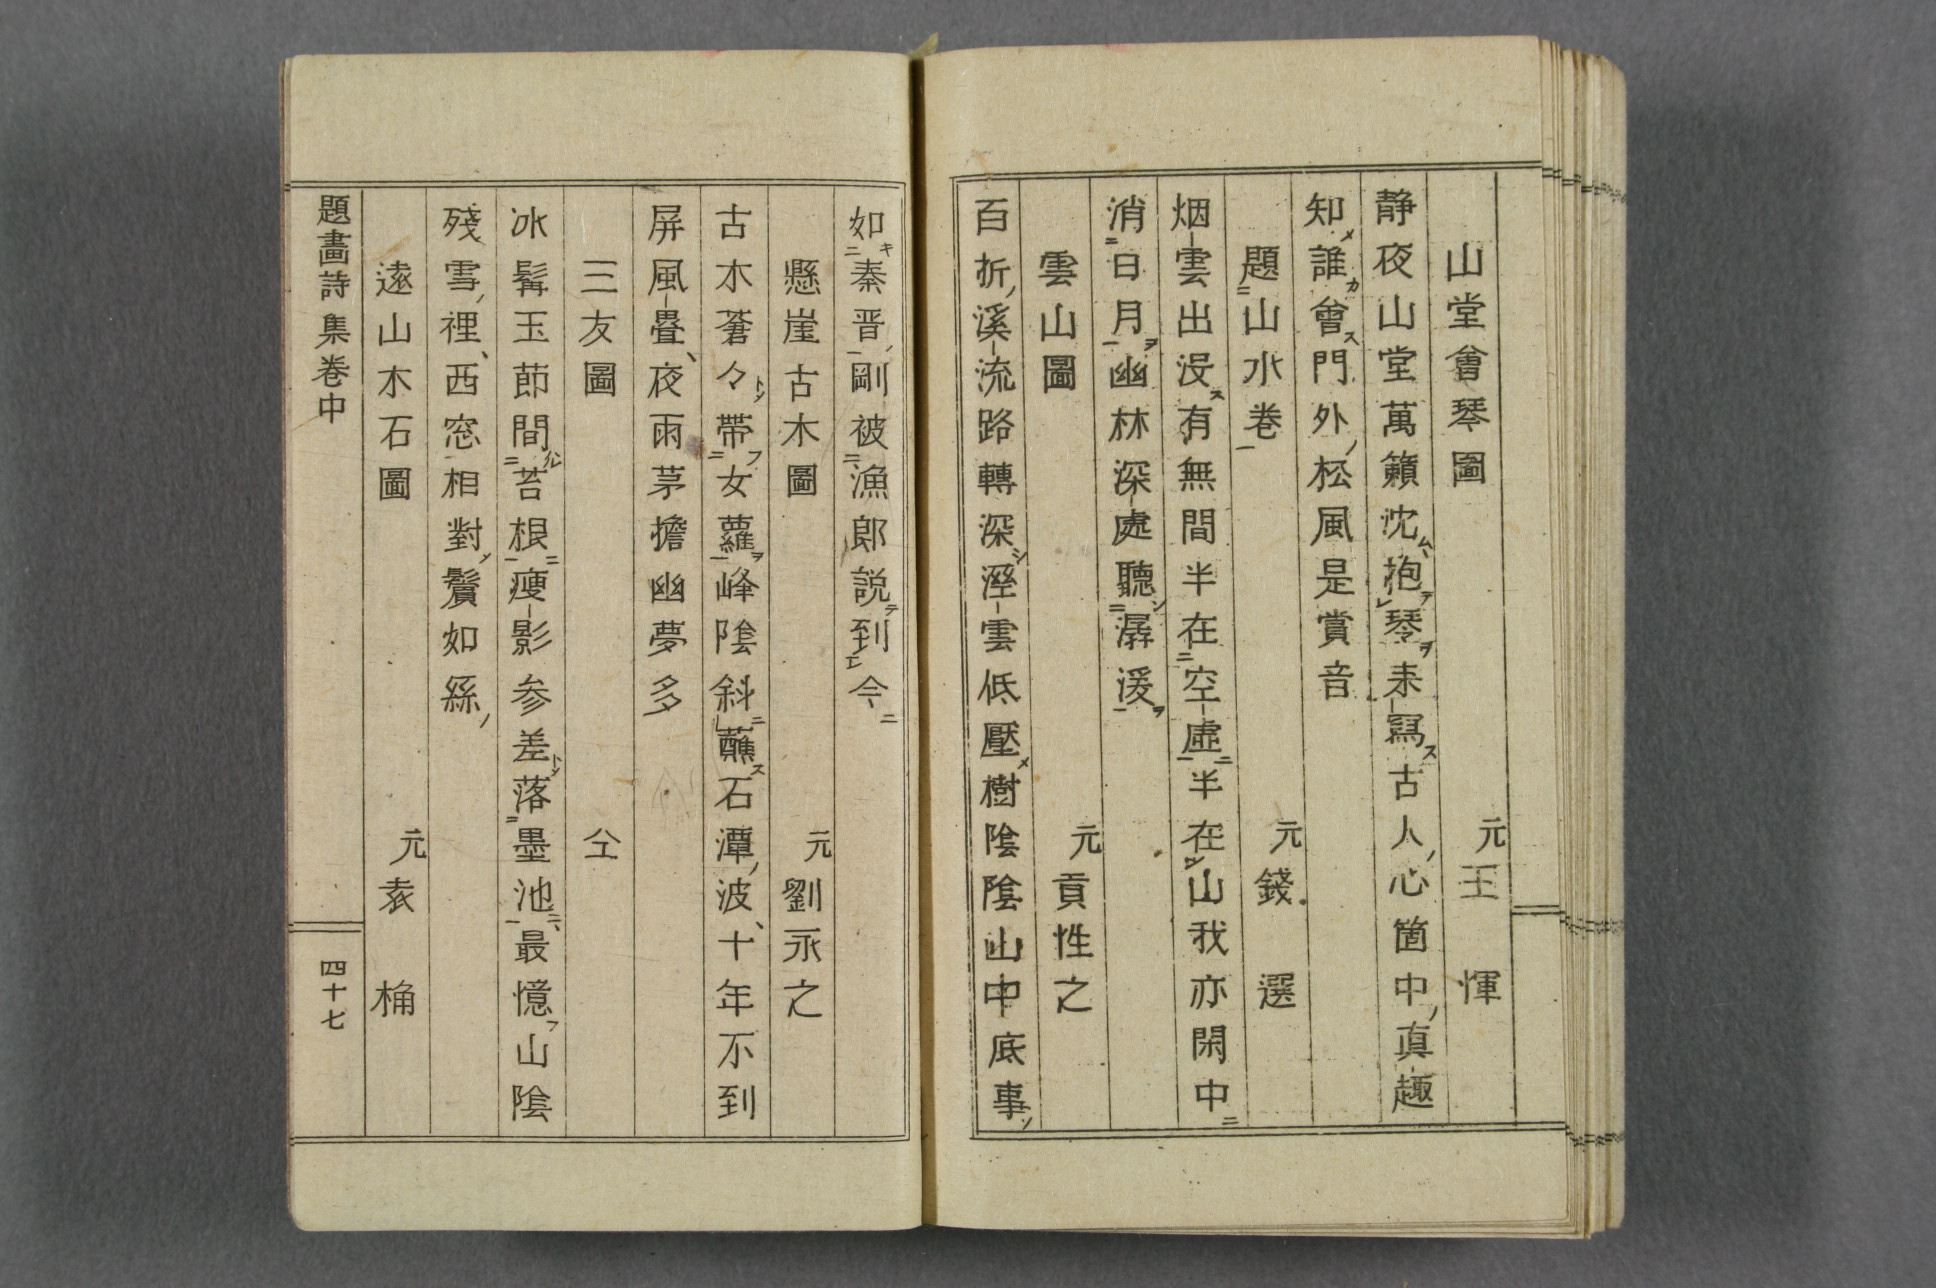 山堂會琴圖 元王 惲
静夜山堂萬籟沈抱琴来寫古人心箇中真趣
知誰會門外松風是賞音
題山水卷 元錢 選
烟雲出没有無間半在空虛半在山我亦閑中
消日月幽林深處聽潺湲
雲山圖 元貢性之
百折溪流路轉深溼雲低壓樹陰陰山中底事
如秦晋剛被漁郎説到今
懸崖古木圖 元劉永之
古木蒼々帶女蘿峰陰斜蘸石潭波十年不到
屏風疊夜雨茅檐幽夢多
三友圖 仝
冰髯玉節間苔根痩影参差落墨池最憶山陰
殘雪裡西窓相對鬢如絲
遠山木石圖 元袁 桷
題畫詩集卷中
四十七